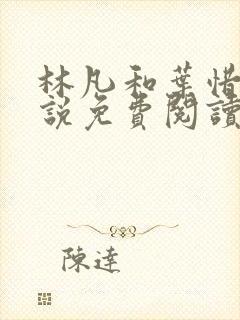 林凡和葉惜
說免費閱讀
陳達